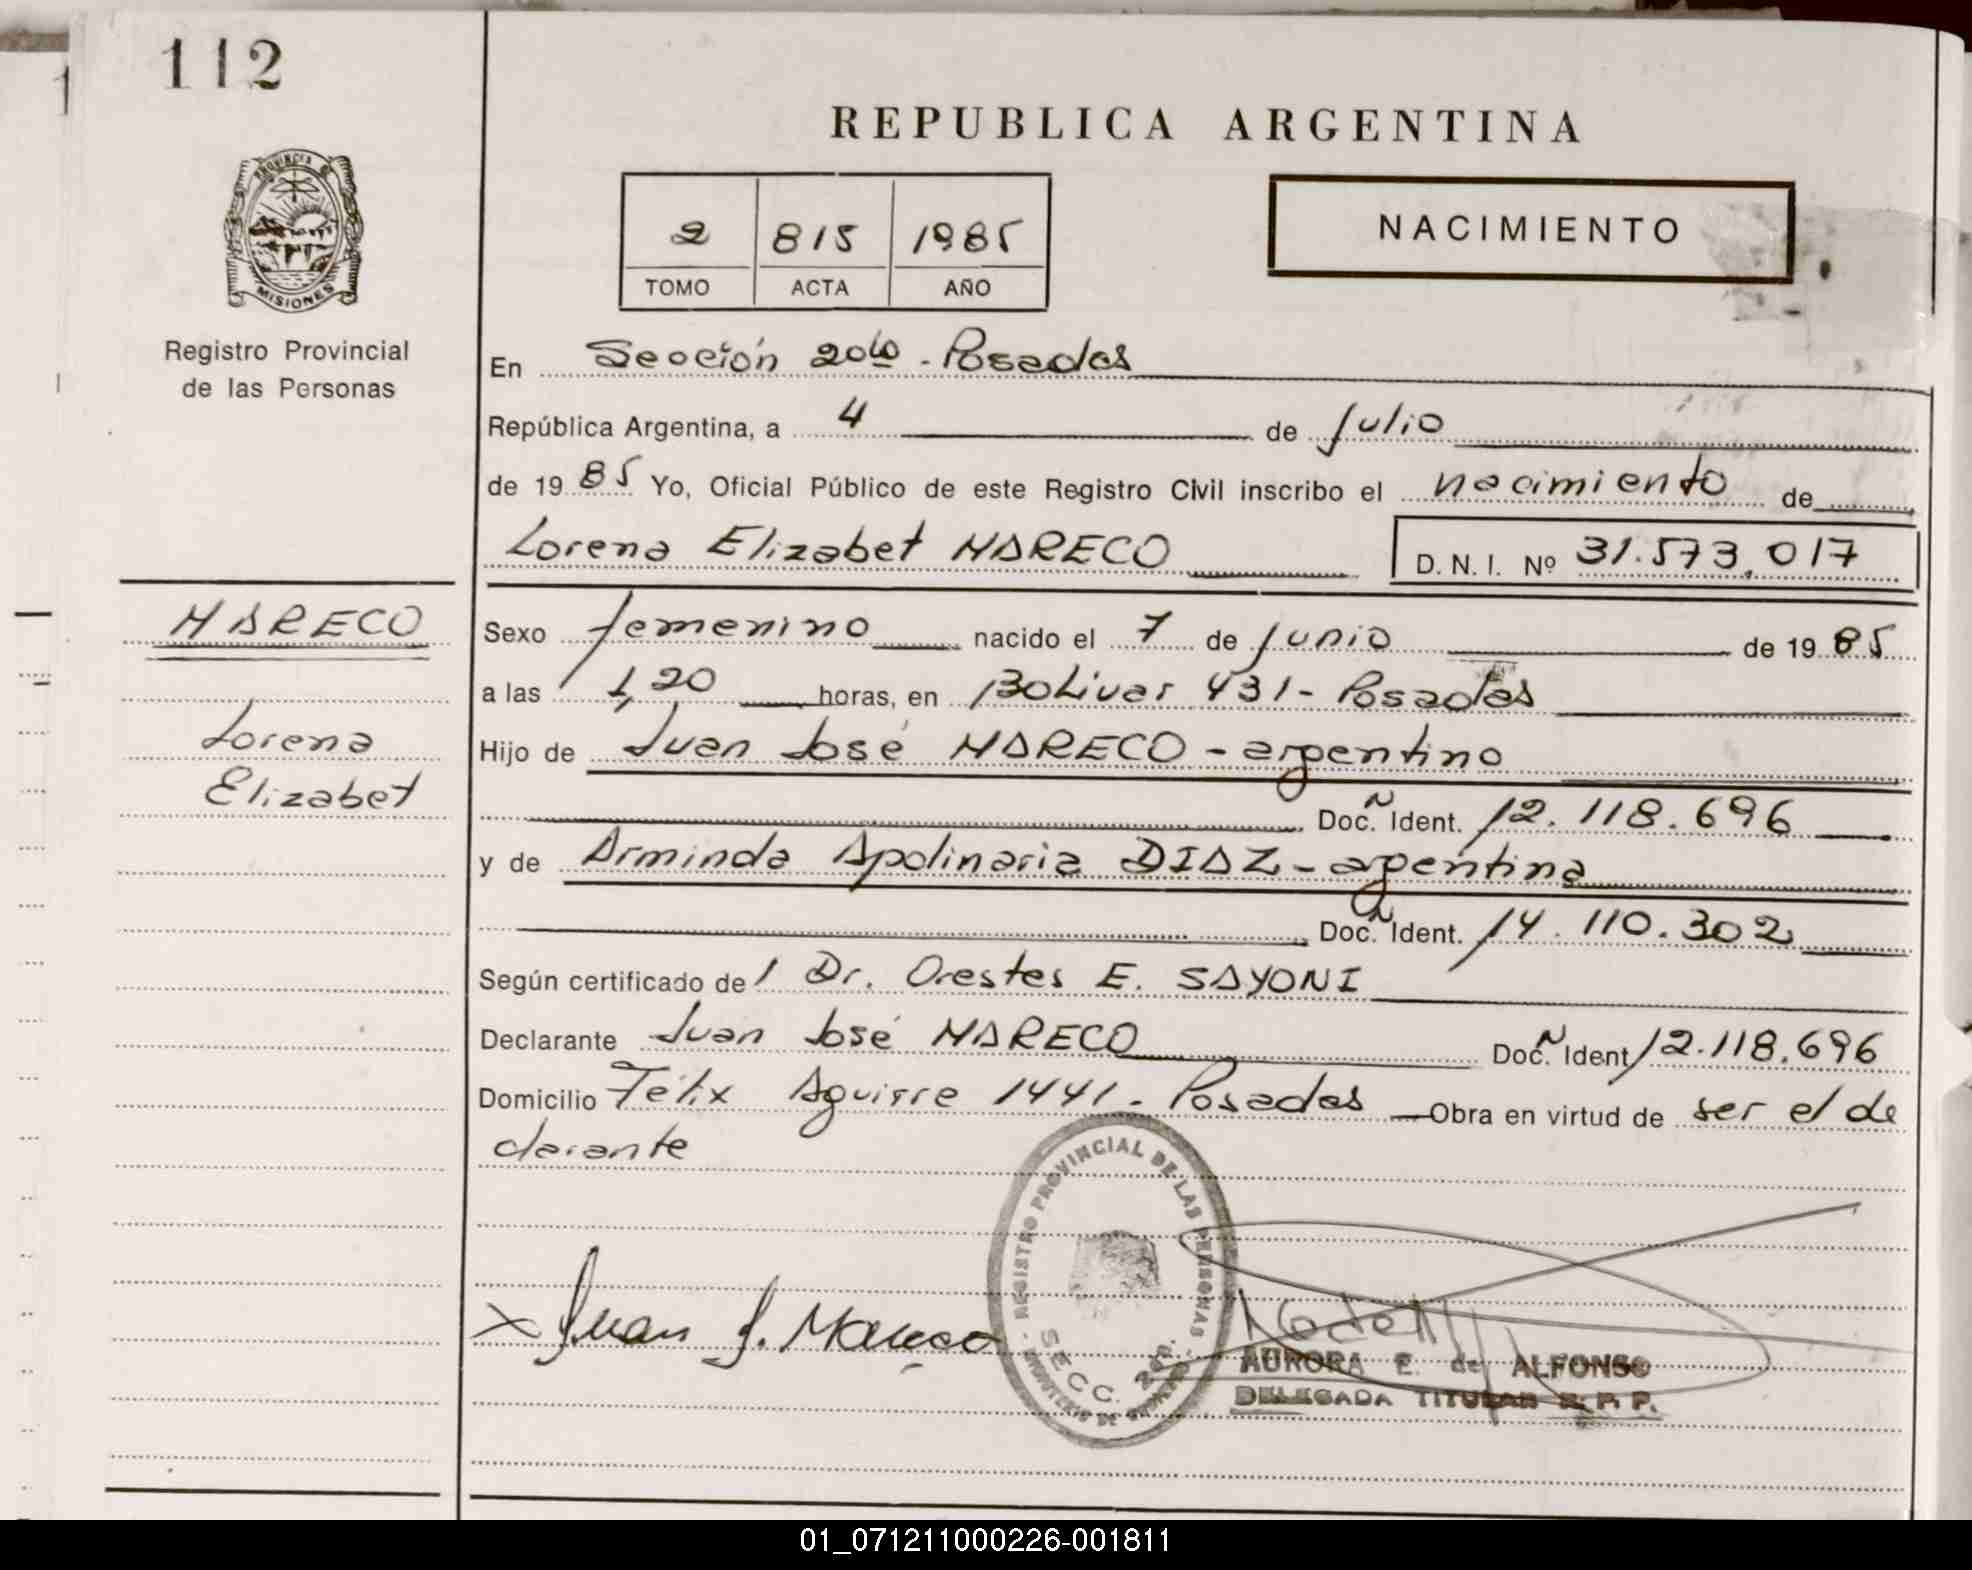 112
REPUBLICA ARGENTINA
PROVINCIA DE
MISIONES
2 815 1985
TOMO ACTA AÑO
NACIMIENTO
Registro Provincial
de las Personas
En Sección 20ta - Posadas
República Argentina, a 4 de Julio
de 1985 Yo, Oficial Público de este Registro Civil inscribo el nacimiento de
Lorena Elizabet MARECO D. N. I. Nº 31.573.017
MARECO
Lorena
Elizabet
Sexo femenino nacido el 7 de Junio de 1985
a las 1,20 horas, en Bolivar 431 - Posadas
Hijo de Juan José MARECO - argentino
Doc. Ident. 12.118.696
y de Arminda Apolinaria DIAZ - argentina
Doc. Ident. 14.110.302
Según certificado de / Dr. Orestes E. SAYONI
Declarante Juan José MARECO Doc. Ident 12.118.696
Domicilio Félix Aguirre 1441 - Posadas Obra en virtud de ser el de
clarante
REGISTRO PROVINCIAL DE LAS PERSONAS
SECC.
x Juan J. Mareco
AURORA E. de ALFONSO
DELEGADA TITULAR R. P. P.
01_071211000226-001811